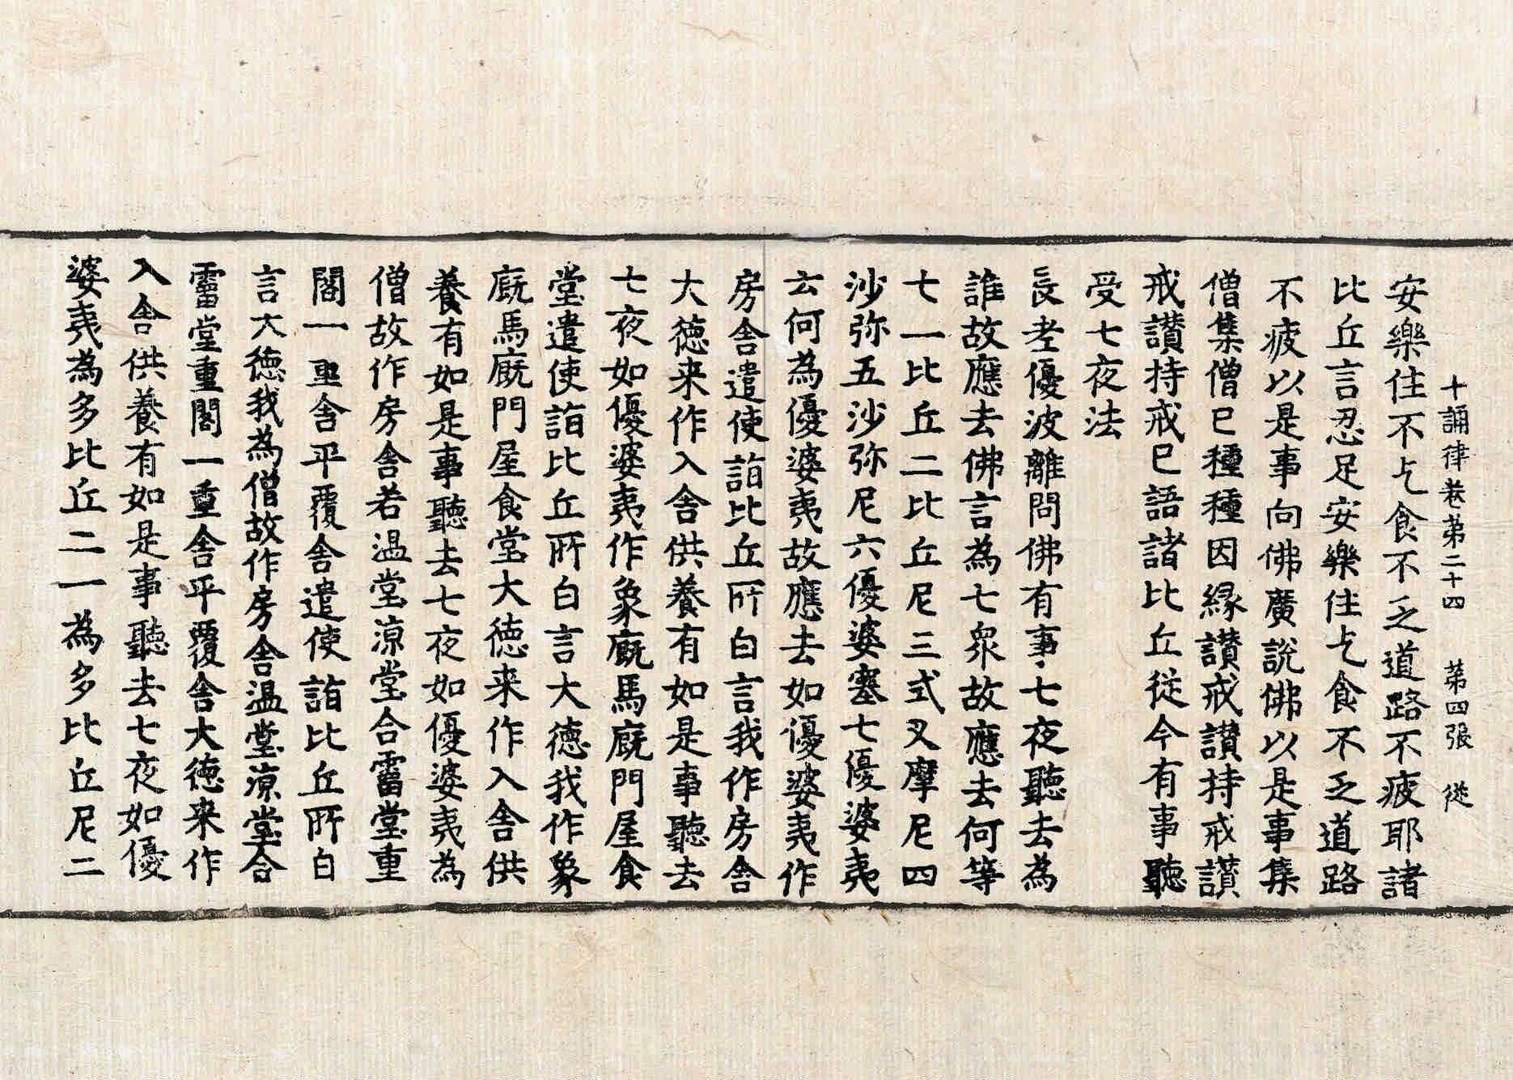 十誦律卷第二十四　第四張　從
安樂住不乞食不乏道路不疲耶諸
比丘言忍足安樂住乞食不乏道路
不疲以是事向佛廣說佛以是事集
僧集僧已種種因緣讃戒讃持戒讃
戒讃持戒已語諸比丘從今有事聽
受七夜法
長老優波離問佛有事七夜聽去為
誰故應去佛言為七衆故應去何等
七一比丘二比丘尼三式叉摩尼四
沙弥五沙弥尼六優婆塞七優婆夷
云何為優婆夷故應去如優婆夷作
房舎遣使詣比丘所白言我作房舎
大徳来作入舎供養有如是事聽去
七夜如優婆夷作象廐馬廐門屋食
堂遣使詣比丘所白言大徳我作象
廐馬廐門屋食堂大徳来作入舎供
養有如是事聽去七夜如優婆夷為
僧故作房舎若温堂涼堂合霤堂重
閣一重舎平覆舎遣使詣比丘所白
言大徳我為僧故作房舎温堂涼堂合
霤堂重閣一重舎平覆舎大徳来作
入舎供養有如是事聽去七夜如優
婆夷為多比丘二一為多比丘尼二